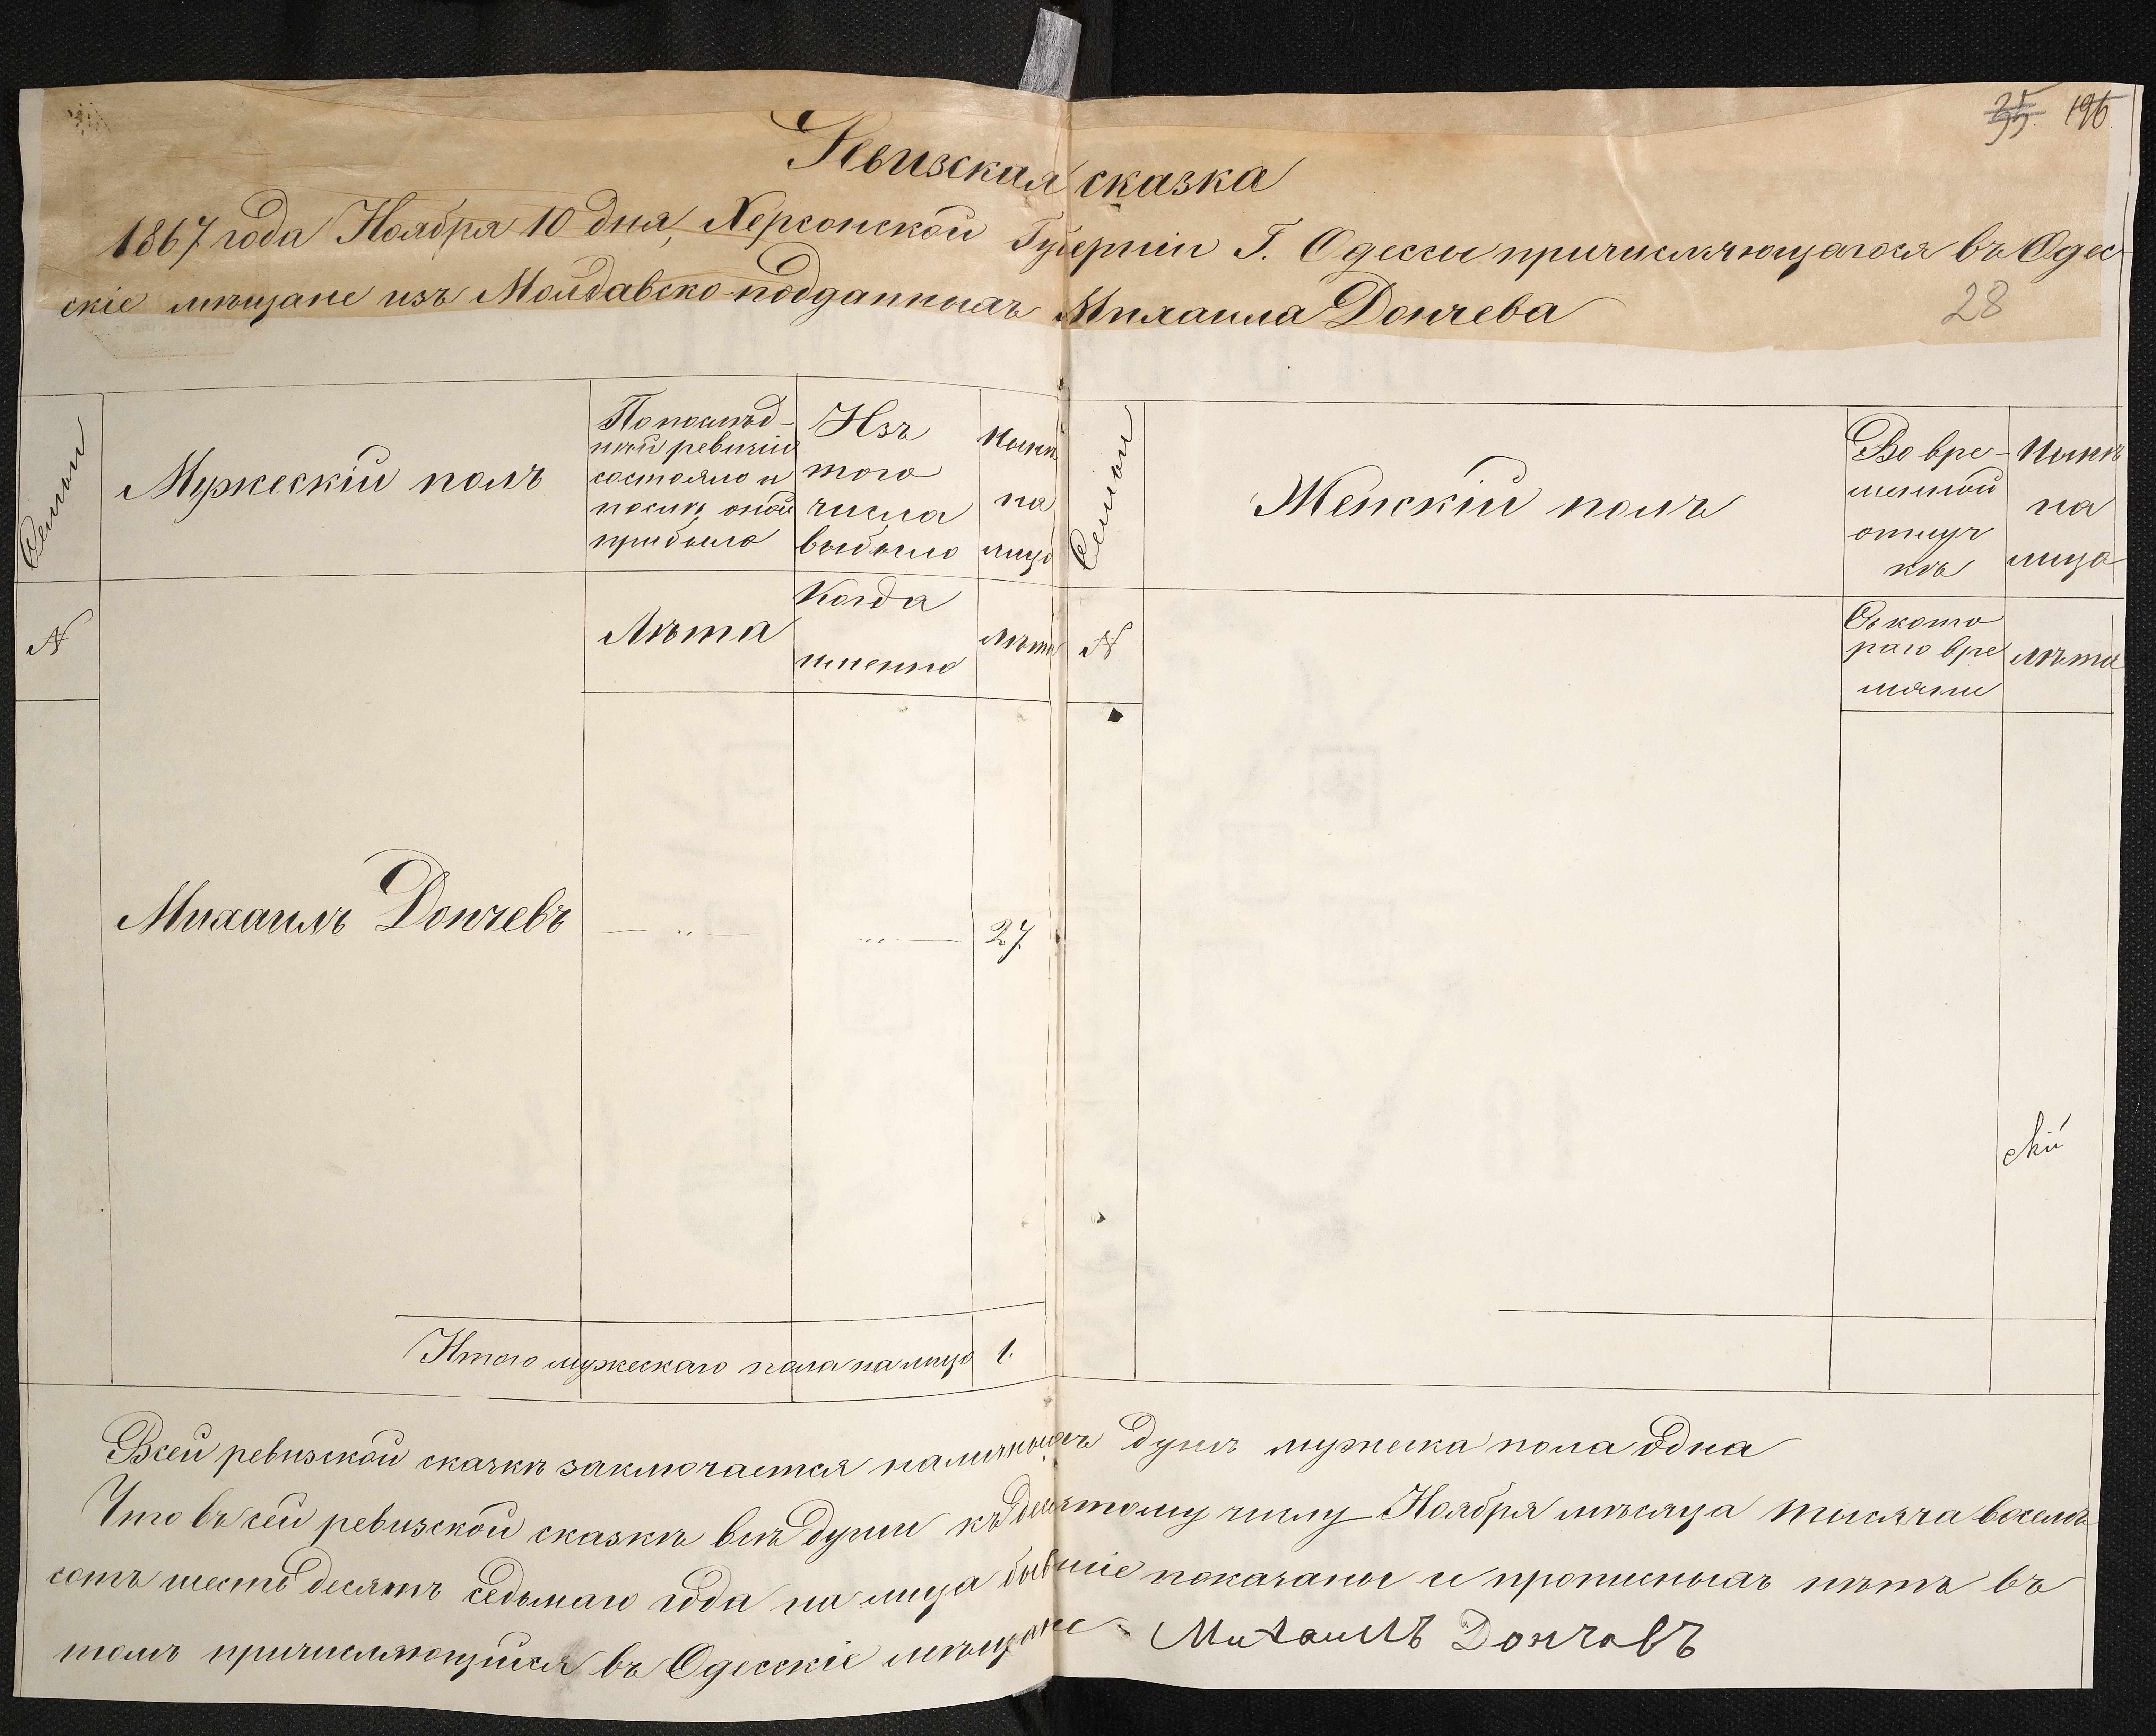 196
Ревизская сказка
1867 года Ноября 10 дня, Херсонской Губерніи Г. Одессы причисляющагося въ Одес-
скіе мѣщане изъ Молдавско-подданныхъ Михаила Дончева
28
Семьи
Мужескій полъ
По послѣд-
ней ревизіи
состояло и
послѣ оной
прибыло
Изъ
того
числа
выбыло
Нынѣ
на
лицо
Семьи
Женскій полъ
Во вре-
менной
отлуч
кѣ
Нынѣ
на
лицо
N
Лѣта
Когда
именно
Лѣта
N
Съ кото
раго вре
мяни
Лѣта
Михаилъ Дончевъ — „ — „ — 27
Итого мужескаго пола на лицо 1.
Всей ревизской сказкѣ заключается наличныхъ душъ мужеска пола одна
Что въ сей ревизской сказкѣ всѣ души къ десятому числу Ноября мѣсяца тысяча восемь
сотъ шесть десятъ седьмаго года на лицо бывшіе показаны и прописныхъ нѣтъ въ
томъ причисляющійся въ Одесскіе мѣщане - Михаилъ Дончовъ